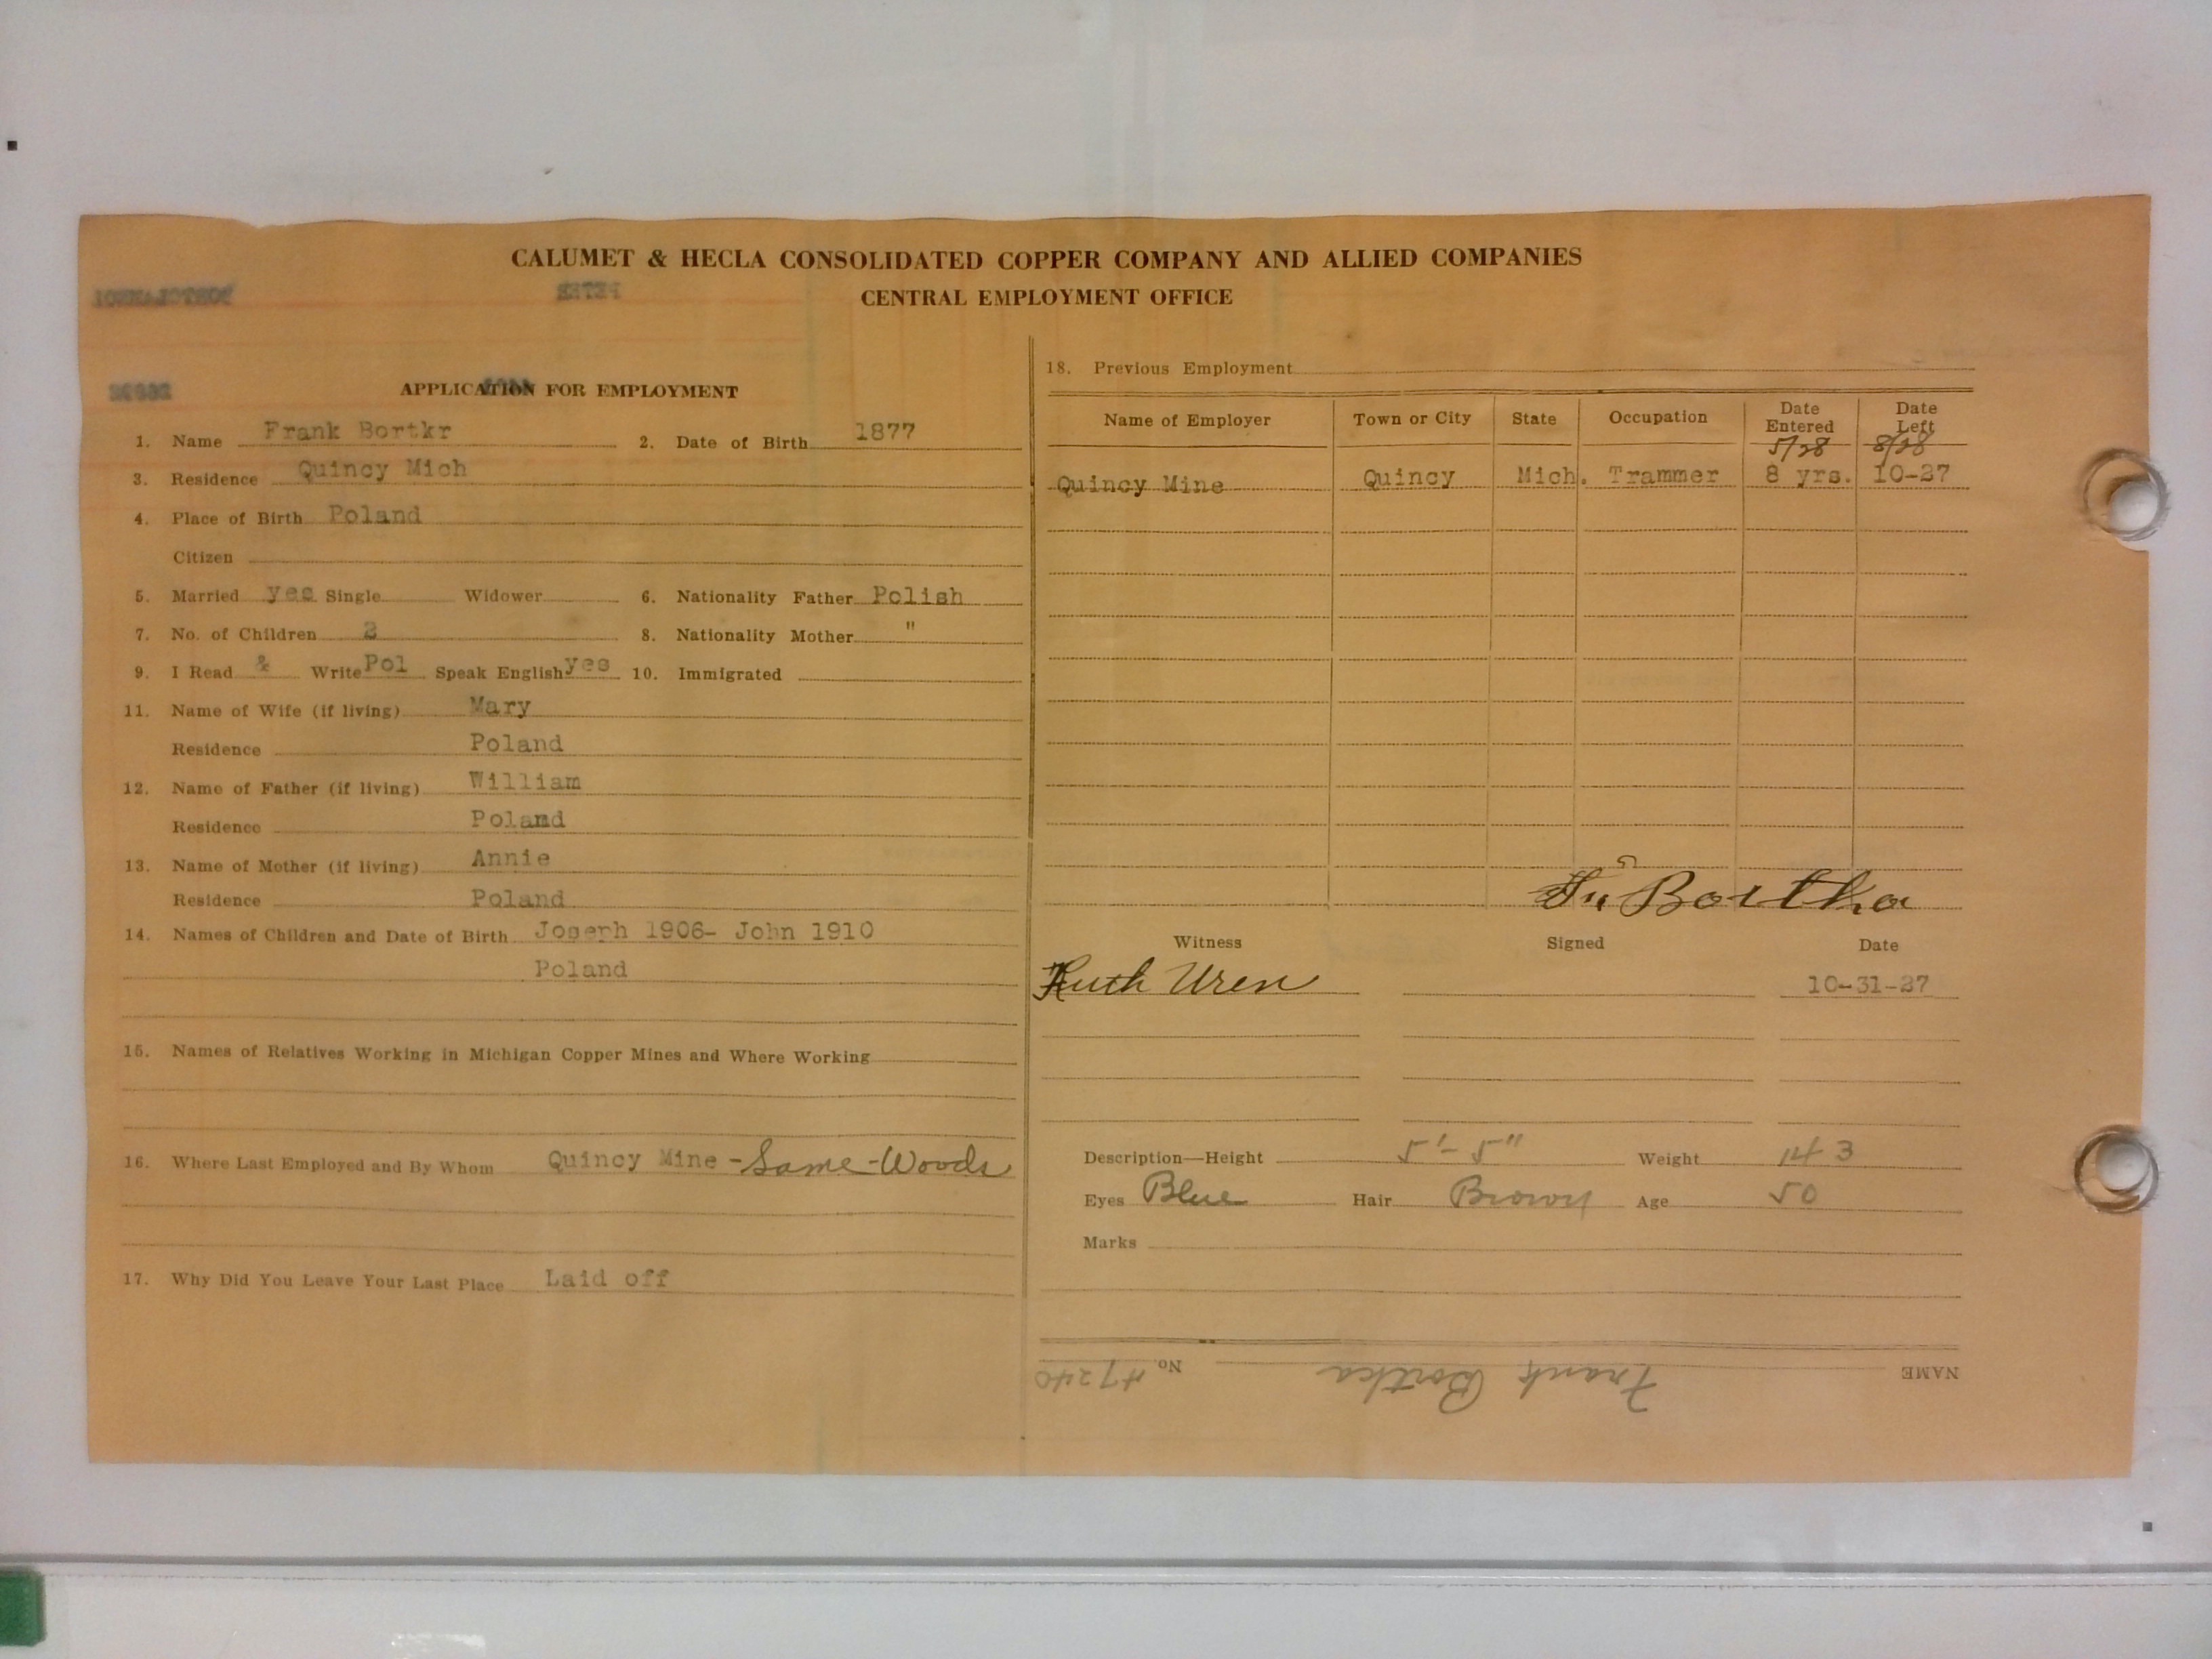 CALUMET & HECLA CONSOLIDATED COPPER COMPANY AND ALLIED COMPANIES
CENTRAL EMPLOYMENT OFFICE
APPLICATION FOR EMPLOYMENT
1. Name Frank Bortkr 2. Date of Birth 1877
3. Residence Quincy Mich
4. Place of Birth Poland
Citizen
5. Married yes Single Widower 6. Nationality Father Polish
7. No. of Children 2 8. Nationality Mother "
9. I Read & Write Pol Speak English yes 10. Immigrated
11. Name of Wife (if living) Mary
Residence Poland
12. Name of Father (if living) William
Residence Poland
13. Name of Mother (if living) Annie
Residence Poland
14. Names of Children and Date of Birth Joserh 1906- John 1910
Poland
15. Names of Relatives Working in Michigan Copper Mines and Where Working
16. Where Last Employed and By Whom Quincy Mine - Same - Woods
17. Why Did You Leave Your Last Place Laid off
18. Previous Employment
Name of Employer Town or City State Occupation Date Entered Date Left
5/28 8/28
Quincy Mine Quincy Mich. Trammer 8 yrs. 10-27
Bortka
Witness Signed Date
Ruth Uren 10-31-27
Description—Height 5'- 5" Weight 143
Eyes Blue Hair Brown Age 50
Marks
NAME Frank Bortka No. 47240